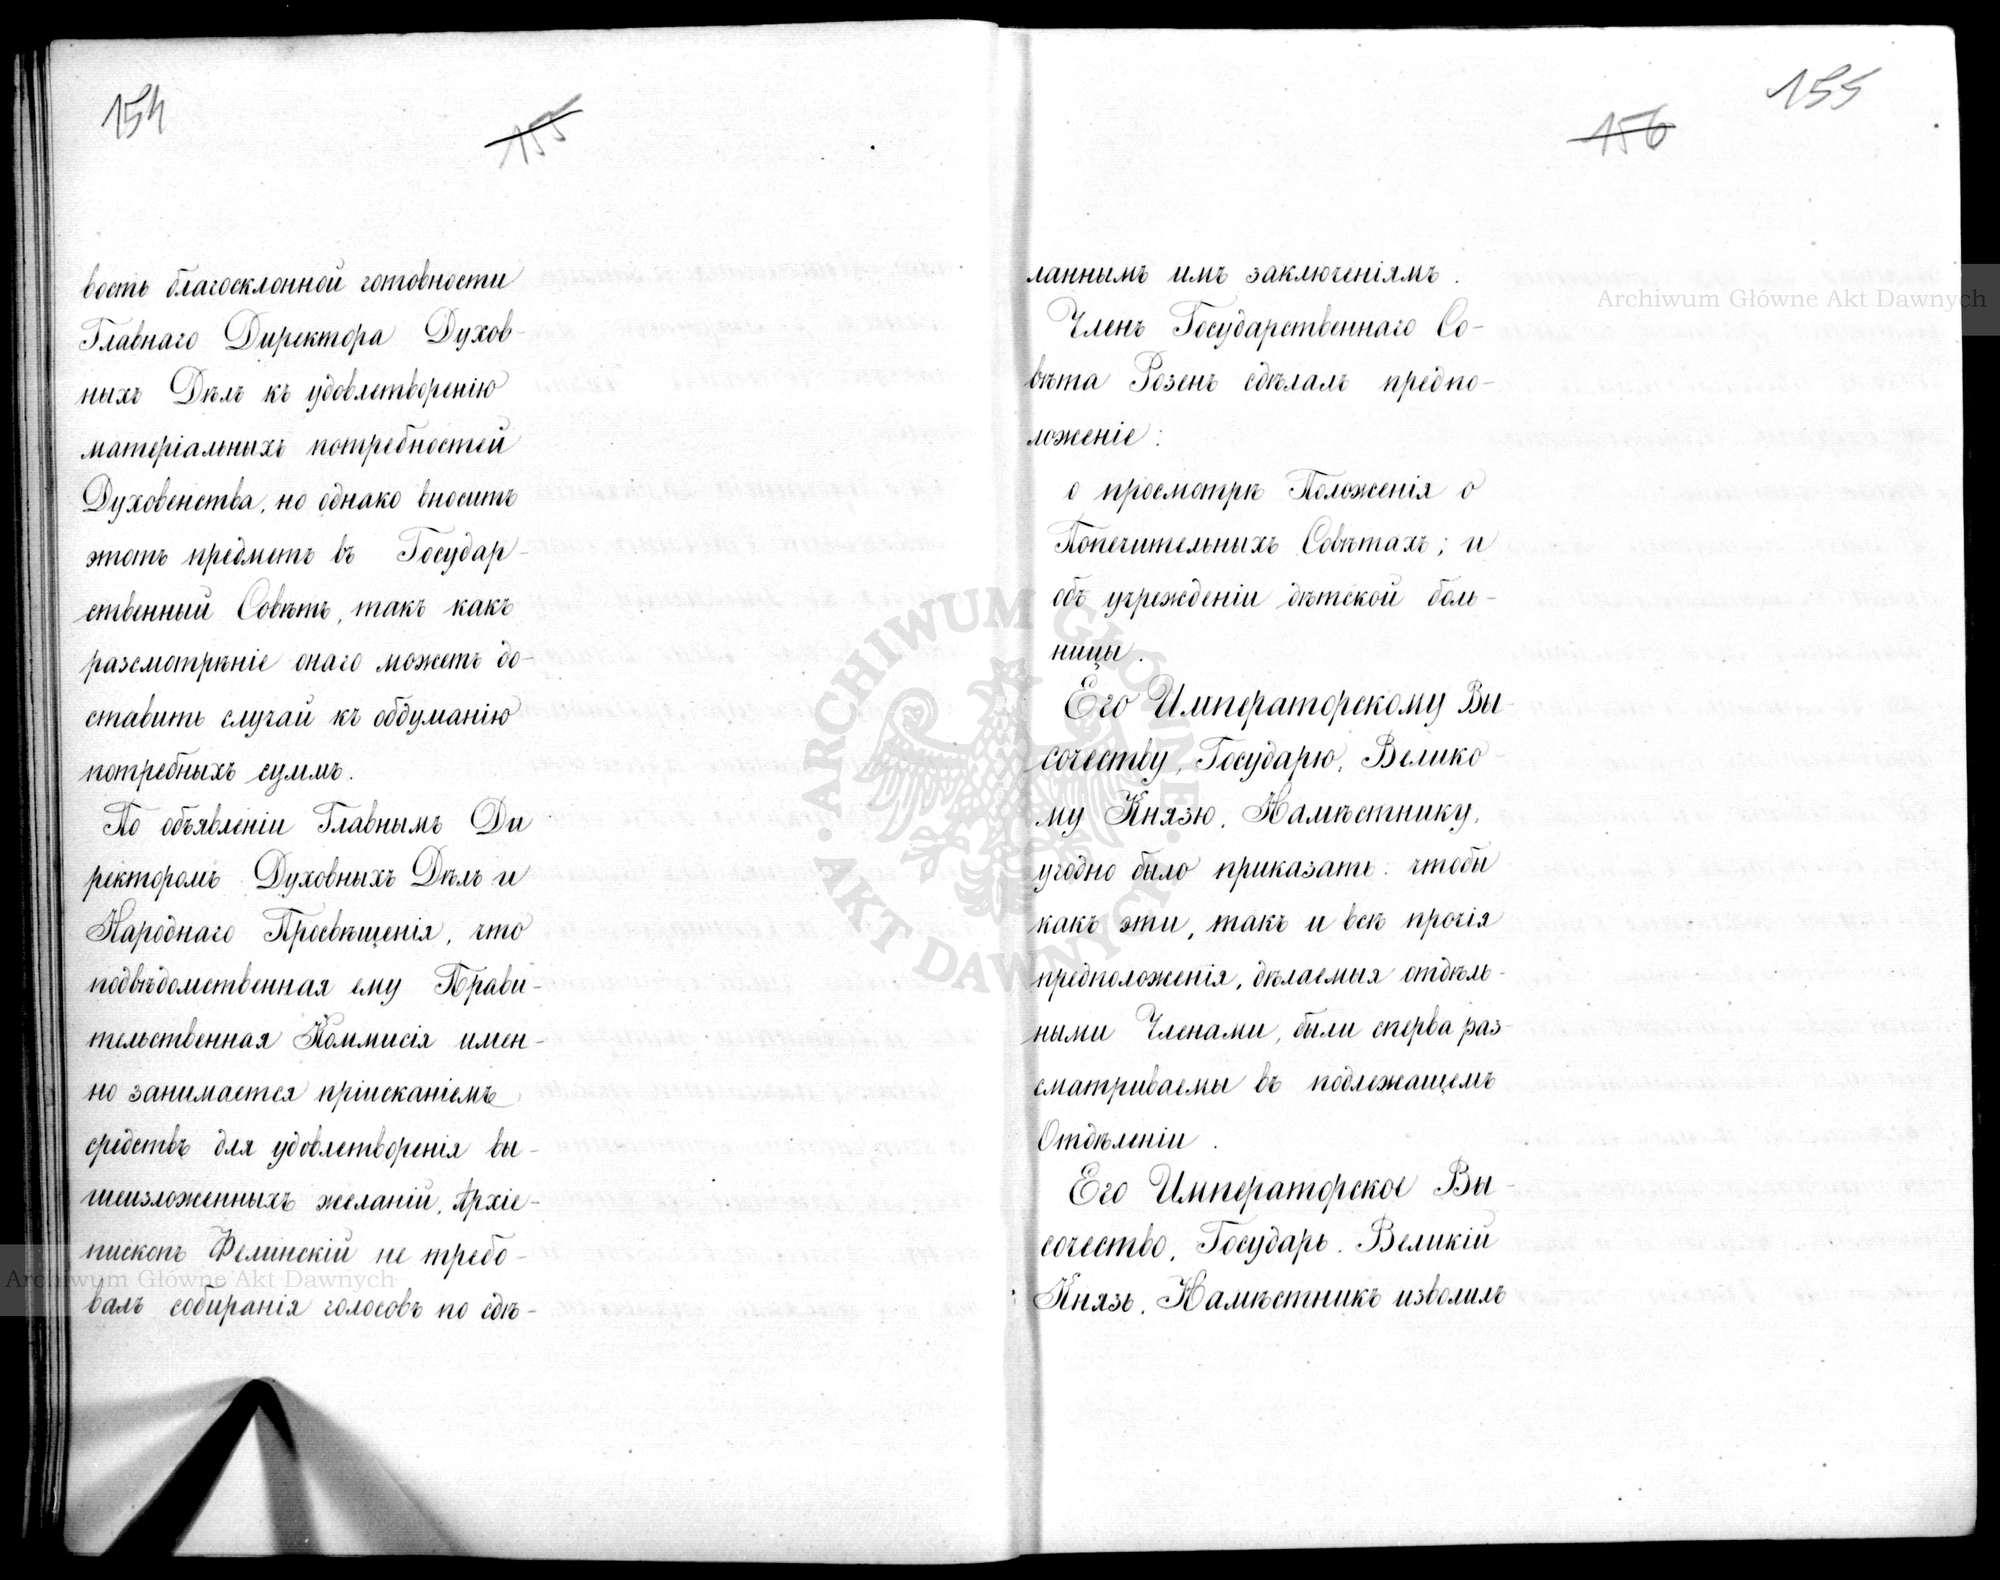 154
155
вость благосклонной готовности
Главнаго Директора Духов-
ныхъ Дѣлъ къ удовлетворенію
матеріальныхъ потребностей
Духовенства, но однако вноситъ
этотъ предметъ въ Государ-
ственный Совѣтъ, такъ какъ
разсмотрѣніе онаго можетъ до-
ставить случай къ обдуманію
потребныхъ суммъ.
По объявленіи Главнымъ Ди
ректоромъ Духовныхъ Дѣлъ и
Народнаго Просвѣщенія, что
подвѣдомственная ему Прави-
тельственная Коммисія имен-
но занимается пріисканіемъ
средствъ для удовлетворенія вы-
шеизложенныхъ желаній, Архіе-
пископъ Фелинскій не требо-
валъ собиранія голосовъ по сдѣ-
155
156
ланнымъ имъ заключеніямъ.
Членъ Государственнаго Со-
вѣта Розенъ сдѣлалъ предпо-
ложеніе:
о просмотрѣ Положенія о
Попечительныхъ Совѣтахъ; и
объ учрежденіи дѣтской боль-
ницы.
Его Императорскому Вы-
сочеству, Государю, Велико-
му Князю, Намѣстнику,
угодно было приказать: чтобы
какъ эти, такъ и всѣ прочія
предположенія, дѣлаемыя отдѣль-
ными Членами, были сперва раз-
сматриваемы въ подлежащемъ
Отдѣленіи.
Его Императорское Вы-
сочество, Государь, Великій
Князь, Намѣстникъ изволилъ
Archiwum Główne Akt Dawnych
Archiwum Główne Akt Dawnych
ARCHIWUM GŁÓWNE
AKT DAWNYCH